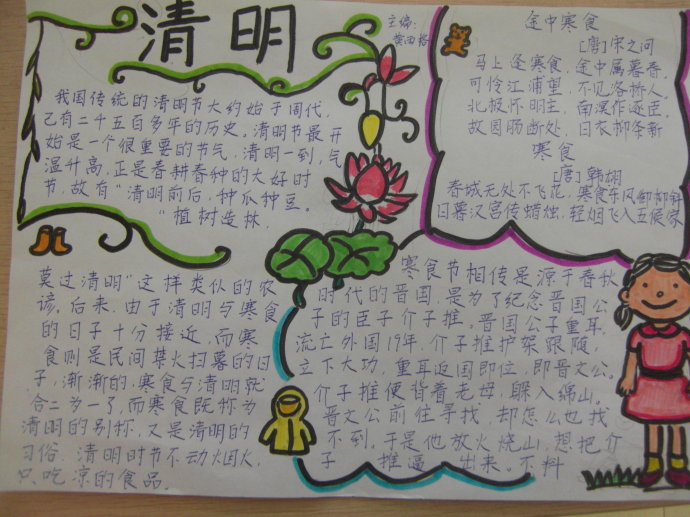 清明
主编:
我国传统的清明节大约始于周代,
己有二千五百多年的历史。清明节最开
始是一个很重要的节气,清明一到,气
温升高,正是春耕春种的大好时
节,故有“清明前后,种瓜种豆。
”“植树造林,
莫过清明”这样类似的农
谚。后来,由于清明与寒食
的日子十分接近,而寒
食则是民间禁火扫墓的日
子,渐渐的,寒食与清明就
合二为一了,而寒食既称为
清明的别称,又是清明的
习俗,清明时节不动烟火,
只吃凉的食品.
途中寒食
[唐]宋之问
马上逢寒食,途中属暮春,
可怜江浦望,不见洛桥人,
北极怀明主,南溟作逐臣,
故园肠断处,日衣柳条新
寒食
[唐]韩翃
春城无处不飞花,寒食东风御柳斜
日暮汉宫传蜡烛,轻烟飞入五候家
寒食节相传是源于春秋
时代的晋国,是为了纪念晋国公
子的臣子介子推。晋国公子重耳,
流亡外国19年,介子推护驾跟随
立下大功,重耳返国即位,即晋文公。
介子推便背着老母,躲入绵山。
晋文公前往寻找,却怎么也找
不到,于是他放火烧山,想把介
子推逼出来。不料